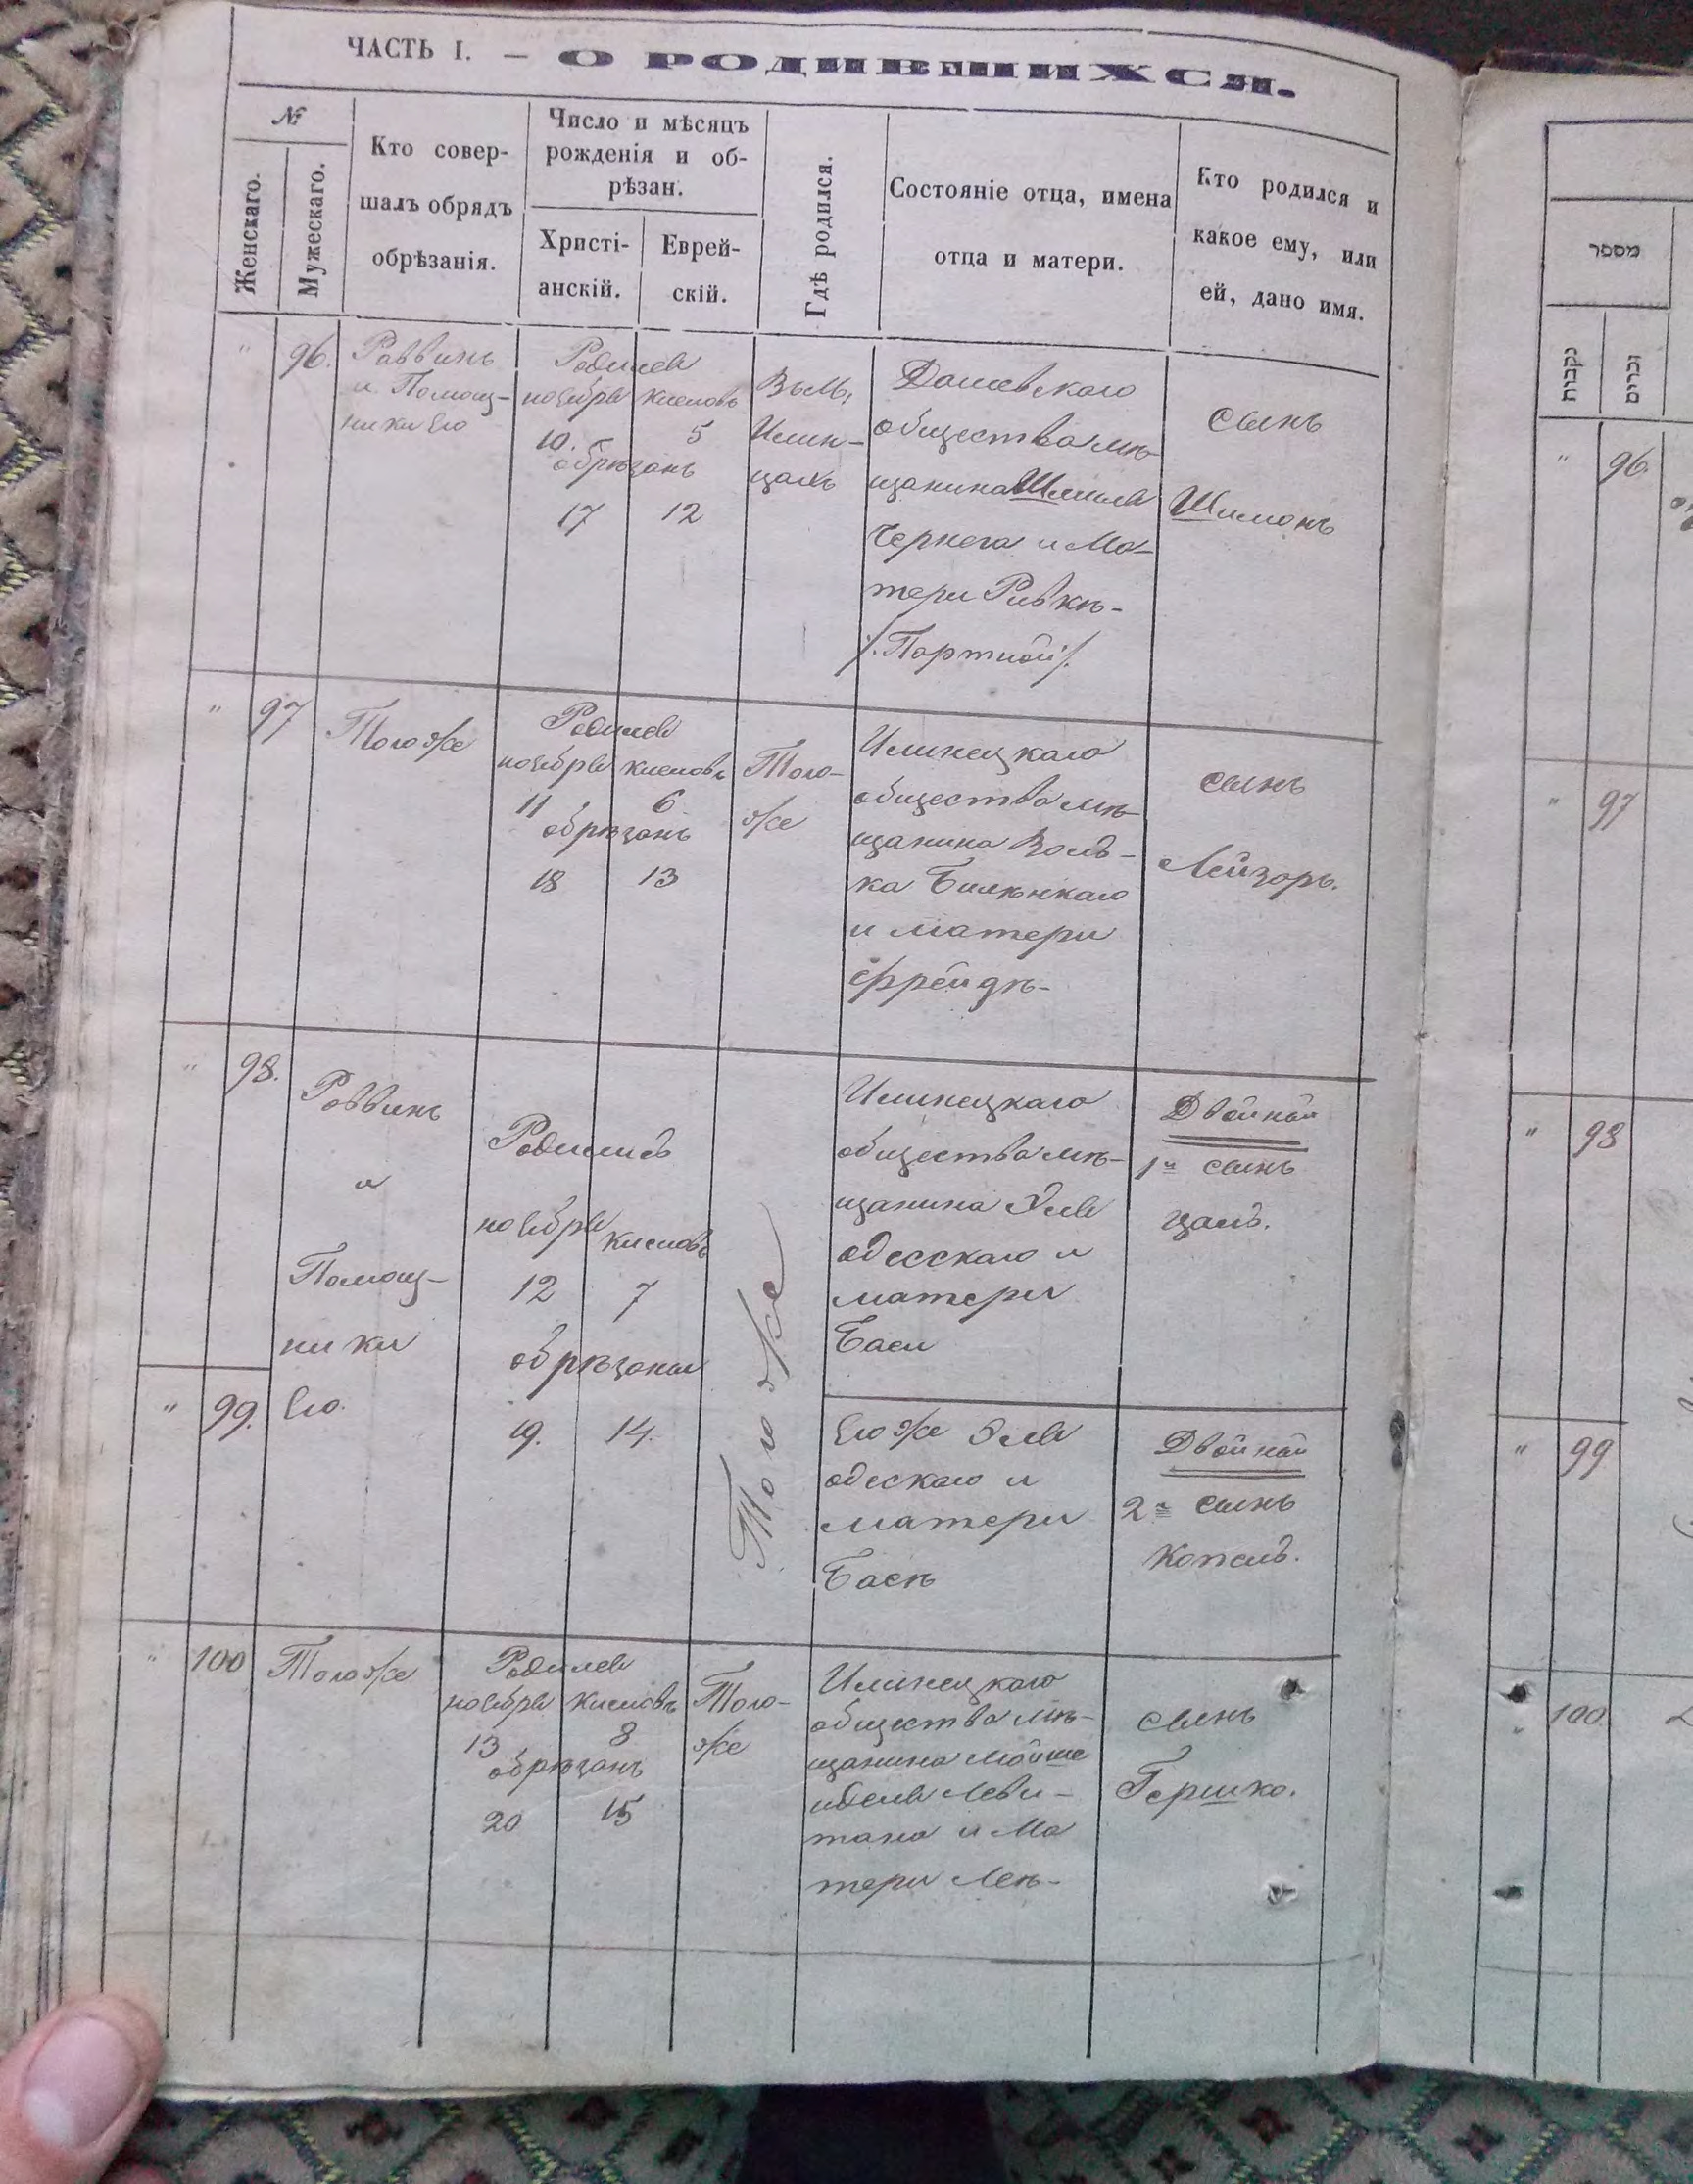 ЧАСТЬ I. — О РОДИВШИХСЯ.
№
Женскаго.
Мужескаго.
Кто совер-
шалъ обрядъ
обрѣзанія.
Число и мѣсяцъ
рожденія и об-
рѣзан.
Христі-
анскій.
Еврей-
скій.
Гдѣ родился.
Состояніе отца, имена
отца и матери.
Кто родился и
какое ему, или
ей, дано имя.
" 96.
Раввинъ
и Помощ-
ники Его
Родился
ноября Кисловъ
10. 5
обрѣзанъ
17 12
Въ М,
Илин-
цахъ
Дашевскаго
общества мѣ-
щанина Шмиля
Чернега и Ма-
тери Ривкѣ-
/. Портной ./
сынъ
Шимонъ
" 97
Тогоже
Родился
ноября Кисловъ
11 6
обрѣзанъ
18 13
Того-
же
Илинецкаго
общества мѣ-
щанина Воль-
ка
и матери
Фрейдѣ-
сынъ
Лейзоръ.
" 98.
Раввинъ
и
Помощ-
ники
Его.
Родились
ноября Кисловъ
12 7
обрѣзаны
19. 14.
Тогоже
Илинецкаго
общества мѣ-
щанина Эля
одесскаго и
матери
Баси
Двойной
1й сынъ
" 99.
Его же Эля
одескаго и
матери
Басѣ
Двойной
2й сынъ
Копель.
" 100
Тогоже
Родился
ноября Кисловъ
13 8
обрѣзанъ
20 15
Того-
же
Илинецкаго
общества мѣ-
щанина Мойше
Леви-
тана и Ма
тери Леѣ-
сынъ
Гершко.
מספר
נקבות
זכרים
" 96.
" 97
" 98
" 99
" 100